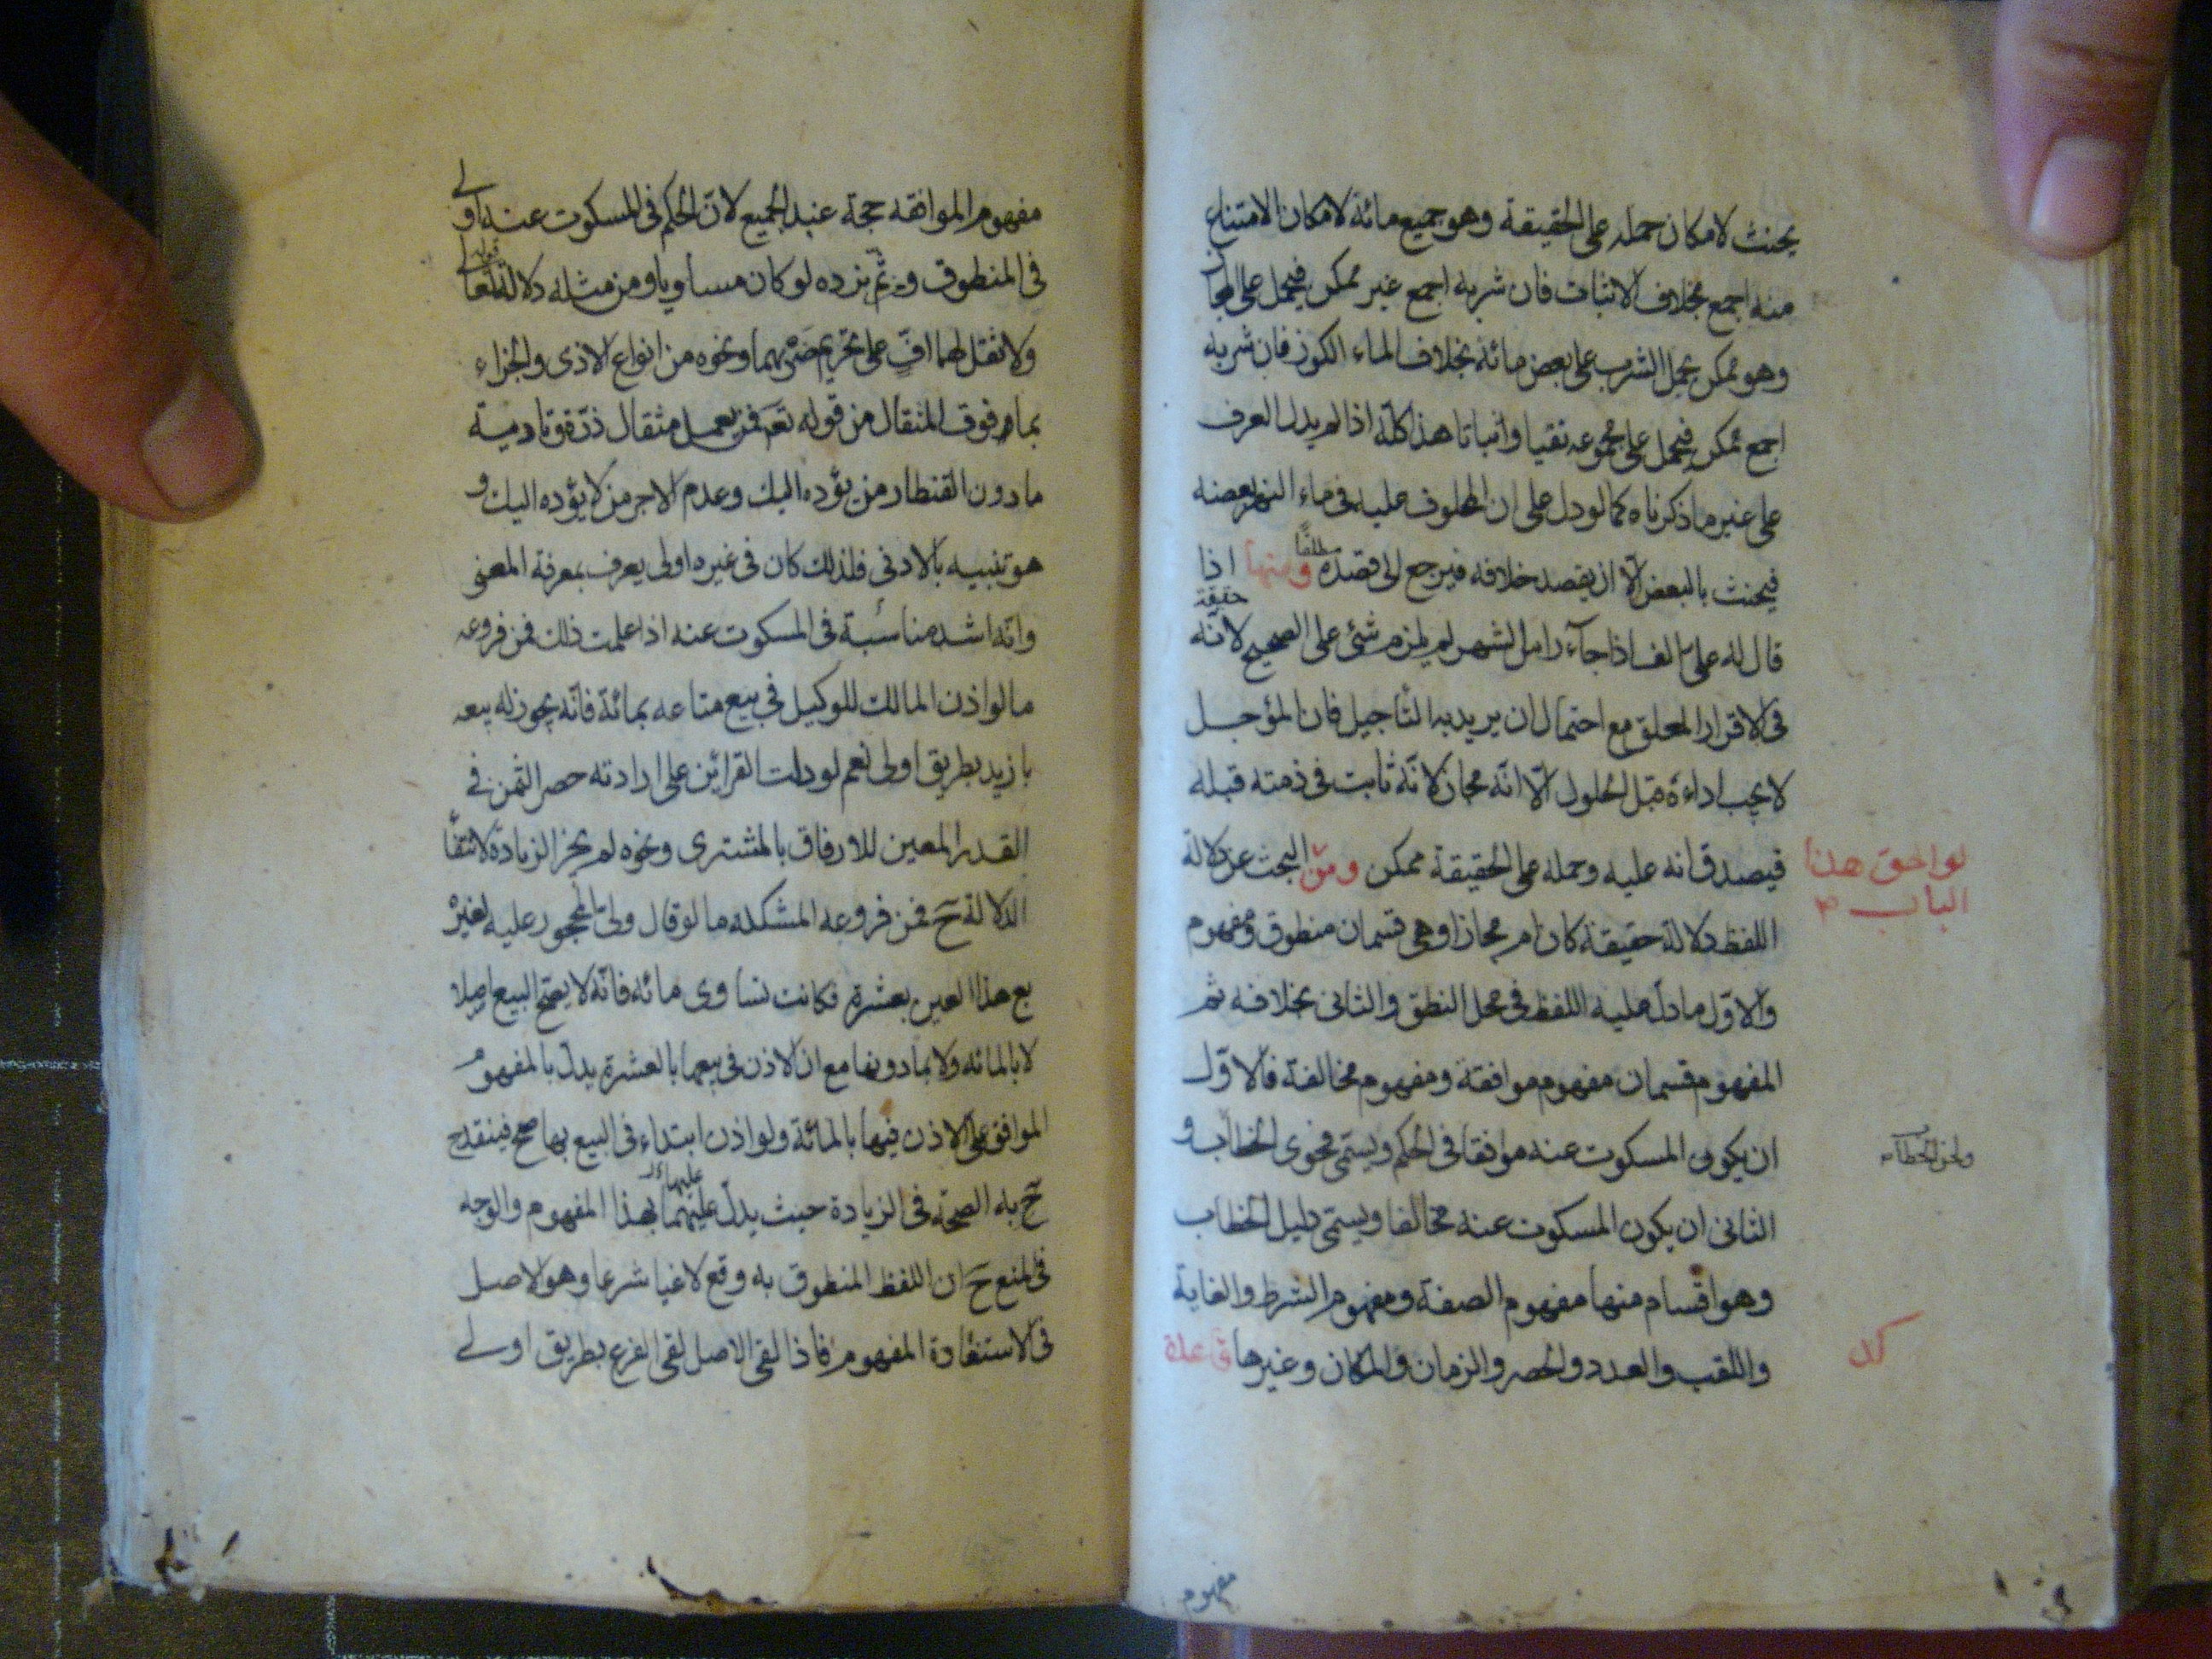 يحنث لامكان حمله على الحقيقة وهو جميع مائة لامكان الامتناع
منه اجمع بخلاف الاثبات فان شربه اجمع غير ممكن فيحمل على المجاز
وهو ممكن بحمل الشرب على بعض مائة بخلاف الماء الكوز فان شربه
اجمع ممكن فيحمل على مجموعه نفيا واثباتا هذا كله اذا لم يدل العرف
على غير ما ذكرناه كما لو دل على ان المحلوف عليه في ماء النهر بعضه
فيحنث بالبعض الا ان يقصد خلافه فيرجع الى قصده مطلقا ومنها اذا
قال له علىّ الف اذا جاء راس الشهر لم يلزم شئ على الصحيح لانه حقيقة
فى الاقرار المعلق مع احتمال ان يريد به التأجيل فان المؤجل
لا يجب اداءه قبل الحلول الّا انّه مجاز لانّه ثابت فى ذمته قبله
فيصدق انه عليه وحمله على الحقيقة ممكن ومن البحث عن دلالة
لواحق هذا
الباب
اللفظ دلالة حقيقة كان ام مجازا وهى قسمان منطوق ومفهوم
والاوّل ما دلّ عليه اللفظ فى محل النطق والثانى بخلافه ثم
المفهوم قسمان مفهوم موافقة ومفهوم مخالفة فالاوّل
ان يكون المسكوت عنه موافقا فى الحكم ويسمّى فحوى الخطاب و
ولحن الخطاب
الثانى ان يكون المسكوت عنه مخالفا ويسمّى دليل الخطاب
وهو اقسام منها مفهوم الصفة ومفهوم الشرط والغاية
واللقب والعدد والحصر والزمان والمكان وغيرها قاعدة
كد
مفهوم
مفهوم الموافقه حجة عند الجميع لانّ الحكم فى المسكوت عنه اولى
فى المنطوق ومن ثمّ نرده لو كان مساويا ومن مثله دلالة قوله تعالى
ولا تقل لهما افٍّ على تحريم ضربهما ونحوه من انواع الاذى والجزاء
بما فوق المثقال من قوله تعم فمن يعمل مثقال ذرّة وتادية
ما دون القنطار من يؤده اليك وعدم الاجر من لا يؤده اليك و
هو تنبيه بالادنى فلذلك كان فى غيره اولى يعرف بمعرفة المعنى
وانّه اشد مناسبة فى المسكوت عنه اذا علمت ذلك فمن فروعه
ما لو اذن المالك للوكيل فى بيع متاعه بمائة فانّه يجوز له بيعه
بازيد بطريق اولى نعم لو دلت القرائن على ارادته حصر الثمن فى
القدر المعين للارفاق بالمشترى ونحوه لم يجز الزيادة لانتفاء
الدلالة حَ فمن فروعه المشكله ما لو قال ولىّ المحجور عليه لغيره
بع هذا العين بعشرة فكانت تساوى مائه فانّه لا يصحّ البيع اصلا
لا بالمائه ولا بما دونها مع ان الاذن فى بيعها بالعشرة يدلّ بالمفهوم
الموافق على الاذن فيها بالمائة ولو اذن ابتداء فى البيع بها صح فينقدح
حَ به الصحّة فى الزيادة حيث يدلّ عليهما بهذا المفهوم والوجه
فى المنع حَ ان اللفظ المنطوق به وقع لاغيا شرعا وهو لاصل
فى الاستفادة المفهوم فاذا الغى الاصل لغى الفرع بطريق اولى